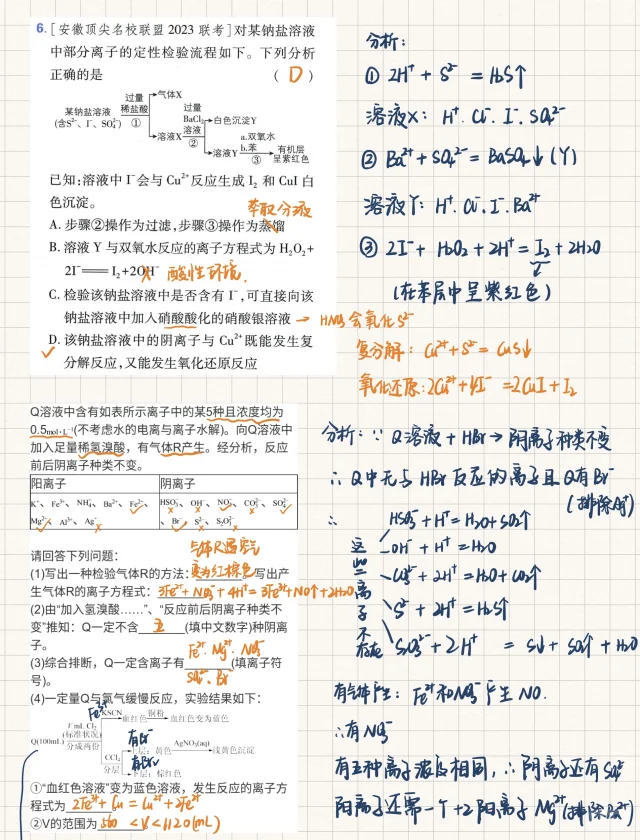 6.[安徽顶尖名校联盟 2023 联考]对某钠盐溶液
中部分离子的定性检验流程如下。下列分析
正确的是 ( D )
某钠盐溶液
(含S²⁻、I⁻、SO₄²⁻)
过量
稀盐酸
①
气体X
溶液X
过量
BaCl₂
溶液
②
白色沉淀Y
溶液Y
a.双氧水
b.苯
③
有机层
呈紫红色
已知:溶液中 I⁻会与 Cu²⁺反应生成 I₂ 和 CuI 白
色沉淀。
萃取分液
A. 步骤②操作为过滤,步骤③操作为蒸馏
B. 溶液 Y 与双氧水反应的离子方程式为 H₂O₂+
2I⁻══I₂+2OH⁻ × 酸性环境.
C. 检验该钠盐溶液中是否含有 I⁻,可直接向该
钠盐溶液中加入硝酸酸化的硝酸银溶液 → HNO₃会氧化S²⁻
D. 该钠盐溶液中的阴离子与 Cu²⁺既能发生复
分解反应,又能发生氧化还原反应
分析:
① 2H⁺ + S²⁻ = H₂S↑
溶液X: H⁺. Cl⁻. I⁻. SO₄²⁻
② Ba²⁺+SO₄²⁻ = BaSO₄↓(Y)
溶液Y: H⁺. Cl⁻. I⁻. Ba²⁺
③ 2I⁻+ H₂O₂+2H⁺ = I₂+2H₂O
(在苯层中呈紫红色)
复分解: Cu²⁺+S²⁻= CuS↓
氧化还原:2Cu²⁺+4I⁻ =2CuI+I₂
Q溶液中含有如表所示离子中的某5种且浓度均为
0.5mol·L⁻¹(不考虑水的电离与离子水解)。向Q溶液中
加入足量稀氢溴酸，有气体R产生。经分析，反应
前后阴离子种类不变。
阳离子 阴离子
K⁺、Fe³⁺、NH₄⁺、Ba²⁺、Fe²⁺、 HSO₃⁻、OH⁻、NO₃⁻、CO₃²⁻、SO₄²⁻
Mg²⁺、Al³⁺、Ag⁺ 、Br⁻、S²⁻、S₂O₃²⁻
请回答下列问题:
气体R遇空气
(1)写出一种检验气体R的方法: 变为红棕色 写出产
生气体R的离子方程式: 3Fe²⁺+NO₃⁻+4H⁺=3Fe³⁺+NO↑+2H₂O
(2)由“加入氢溴酸……”、“反应前后阴离子种类不
变”推知：Q一定不含 五 (填中文数字)种阴离
子。
Fe²⁺. Mg²⁺. NO₃⁻
(3)综合排断，Q一定含离子有 (填离子符
号)。 SO₄²⁻. Br⁻
(4)一定量Q与氯气缓慢反应，实验结果如下:
Q(100mL)
V mL Cl₂
(标准状况)
分成两份
Fe³⁺
KSCN
血红色
铜粉
血红色变为蓝色
CCl₄
分层
有Br⁻
上层：黄色
AgNO₃(aq)
浅黄色沉淀
有Br₂
下层：棕红色
①“血红色溶液”变为蓝溶液，发生反应的离子方
程式为 2Fe³⁺+Cu=Cu²⁺+2Fe²⁺
②V的范围为 560 <V<1120(mL)
分析: ∵ Q溶液 + HBr → 阴离子种类不变
∴ Q中无与HBr反应的离子且Q有Br⁻
(排除Ag⁺)
∴ 这些离子不存在
HSO₃⁻+H⁺=H₂O+SO₂↑
OH⁻ + H⁺ =H₂O
CO₃²⁻+2H⁺ =H₂O+CO₂↑
S²⁻ + 2H⁺ =H₂S↑
S₂O₃²⁻+2H⁺ = S↓ + SO₂↑ + H₂O
有气体产生: Fe²⁺和NO₃⁻产生NO.
∴有NO₃⁻
有五种离子浓度相同, ∴ 阴离子还有SO₄²⁻
阳离子还需一个+2阳离子 Mg²⁺(排除Ba²⁺)